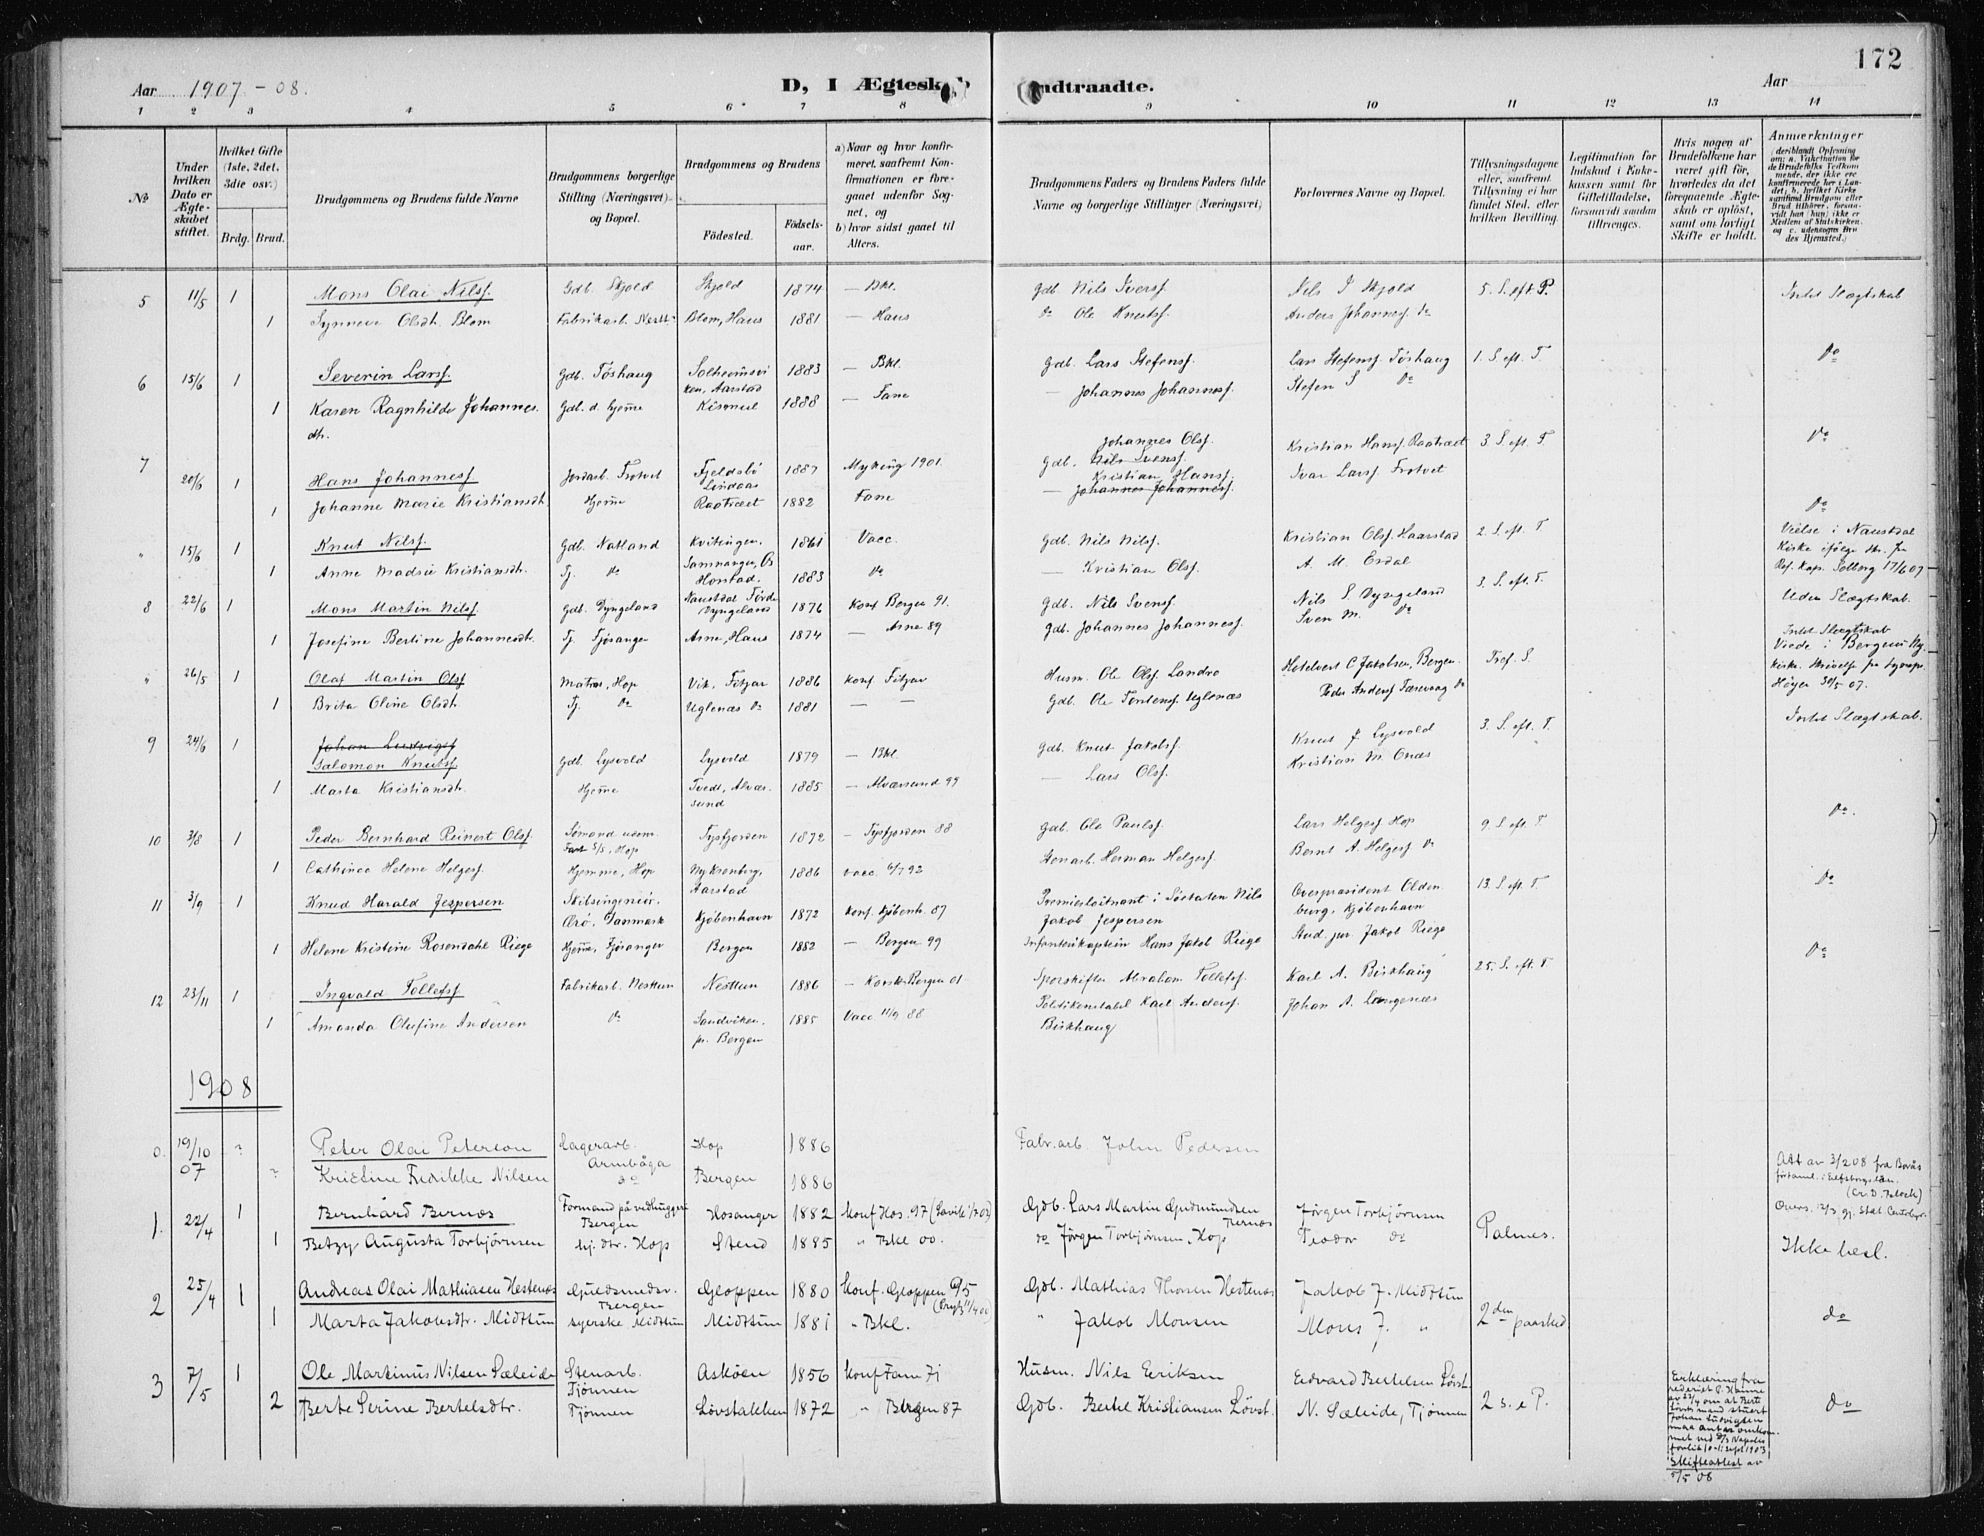 172
Aar 1907-08.
D, I Ægtesk
ndtraadte.
Aar
1 2 3 4 5 6 7 8 9 10 11 12 13 14
No
Under hvilken Dato er Ægteskabet stiftet.
Hvilket Gifte (1ste, 2det, 3die osv.)
Brdg. Brud.
Brudgommens og Brudens fulde Navne
Brudgommens borgerlige Stilling (Næringsvei) og Bopæl.
Brudgommens og Brudens
Fødested.
Fødselsaar.
a) Naar og hvor konfirmeret, saafremt Konfirmationen er foregaaet udenfor Sognet, og
b) hvor sidst gaaet til Alters.
Brudgommens Faders og Brudens Faders fulde Navne og borgerlige Stillinger (Næringsvei)
Forlovernes Navne og Bopæl.
Tillysningsdagene eller, saafremt Tillysning ei har fundet Sted, efter hvilken Bevilling.
Legitimation for Indskud i Enkekassen samt for Giftetilladelse, forsaavidt saadan tiltrænges.
Hvis nogen af Brudefolkene har været gift før, hvorledes da det foregaaende Ægteskab er opløst, samt om lovligt Skifte er holdt.
Anmærkninger
5 11/5 1 Mons Olai Nilsf. Gdb. Skjold Skjold 1874 — Bkl. Gdb Nils Iversf. Nils I Skjold 5. S. eft P. Intet Slægtskab
1 Synneve Olsdt. Blom Fabrikarb. Nestt. Blom, Haus 1881 — Haus do Ole Knutsf. Anders Johannesf. do
6 15/6 1 Severin Larsf. Gdb. Töshaug Solheimsviken, Aarstad 1883 — Bkl. Gdb. Lars Stefensf. Lars Stefensf. Töshaug 1. S. eft. T. do
1 Karen Ragnhilde Johannesdtr. Gdb. d. hjeme Kismul 1888 — Fane — Johannes Johannesf. Stefen S do
7 20/6 1 Hans Johannesf. Jordarb. Trotvet Fjeldsbö Lindaas 1887 Myking 1901. Johannes Olsf. Gdb. Nils Svensf. Kristian Hansf. Raatræet 3 S. eft. T do
1 Johanne Marie Kristiansdt. Hjeme Raatræet 1882 Fane Kristian Hansf. — Johannes Johannesf. Ivar Larsf. Trotvet
" 15/6 1 Knut Nilsf. Gdb. Natland Kvitingen, Samnanger, Os 1861 Vacc. Gdb. Nils Nilsf. Kristian Olsf. Haarstad 2. S. eft. T do
1 Anne Madsie Kristiansdt. Tj. do Horstad, Naustdal Förde 1883 do — Kristian Olsf. A. M. Erdal Vielse i Naustdal Kirke ifølge skr. fra Ref. Kap. Solberg 17/6 07
8 22/6 1 Mons Martin Nilsf. Gdb Dyngeland Dyngeland 1876 Konf Bergen 91. Gdb. Nils Svensf. Nils S Dyngeland 3. S. eft. T. Uden Slægtskab.
1 Josefine Bertine Johannesdt. Tj. Fjösanger Arne, Haus 1874 — Arne 89 Gdb. Johannes Johannesf. Sven M. do
" 26/5 1 Olaf Martin Olsf Matros, Hop Vik, Fitjar 1886 Konf Fitjar Husm. Ole Olsf Landro Hotelvert C Jakobsen, Bergen. Tref. S. Intet Slægtskab Viede i Bergens Ny. kirke. Høyer 30/5 07.
1 Brita Oline Olsdt. Tj. do Uglenæs do 1881 — — Gdb. Ole Tordensf. Uglenæs Peder Andersf. do
9 24/6 1 Johan Ludvigsf Salomon Knutsf Gdb. Lysvold Lysvold 1879 — Bkl. Gdb. Knut Jakobf. Knut J. Lysvold 3. S. eft. T. Intet Slægtskab.
1 Marta Kristiansdt. Hjeme Tvedt, Alværsund 1885 — Alværsund 99 — Lars Olsf. Kristian M. Ones
10 3/8 1 Peder Bernhard Reinert Olsf. Sömand Hop Tysfjorden 1872 — Tysfjorden 88 Gdb. Ole Paulsf. Lars Helgesf. Hop 9. S. eft. T. do.
1 Cathinca Helene Helgesf. Hjemme, Hop Nykronborg, Aarstad 1886 Vacc. 6/7 92 Stenarb. Herman Helgesf. Bernt A. Helgesf do
11 3/9 1 Knud Harald Jespersen Skibsingeniör. Ærö. Danmark Kjöbenhavn 1872 Konf. Kjöbenh. 87 Premierloitnant i Söetaten Nils Jakob Jespersen Overpræsident Oldenburg, Kjöbenhavn 13. S. eft. T. do
1 Helene Kristine Rosendahl Riege Hjeme, Fjösanger Bergen 1882 — Bergen 99 Infanterikaptein Hans Jakob Riege Stud. jur. Jakob Riege
12 23/11 1 Ingvald Tollefsf Fabrikarb. Nesttun Nesttun 1886 — Korsk. Bergen 01 Sporskifter Abraham Tollefsf. Karl A. Birkhaug 25. S. eft. T do
1 Amanda Olufine Andersen do Sandviken, pr. Bergen 1885 Vacc. 11/9 88 Politikonstabel Karl Andersf. Birkhaug Johan A. Langenæs
1908
0. 19/10 07 ? Peter Olai Peterson Lagerarb. Hop 1886 Fabr.arb John Pedersen
? Kristine Fredrikke Nilsen do Bergen 1886 Att av 3/2 08 fra Borås
1. 22/4 1 Bernhard Bernæs Formand på vedhuggeri Bergen Hosanger 1882 Konf Hos. 97 Gdb. Lars Martin Gudmundsen Jörgen Torbjörnsen
1 Betzy Augusta Torbjörnsen hj. dtr. Hop Stend 1885 " Bkl 00. do Jörgen Torbjörnsen, Hop Teodor do Palmes. Ikke besl.
2 25/4 1 Andreas Olai Mathiasen Hestenes Guldsmedsv. Bergen Gloppen 1880 Konf. Gloppen 95 Gdb. Mathias Thorsen Hestenæs Jakob J. Midttun
1 Marta Jakobsdtr. Midttun syerske Midttun Midttun 1881 " Bkl. " Jakob Monsen Mons J. " 2den paasked do
3 7/5 1 Ole Martinus Nilsen Sæleide Stenarb. Tjönnen Asköen 1856 Konf Fam 71 Husm. Nils Eriksen Edvard Bertelsen Lövst.
2 Berte Serine Bertelsdtr. Tjönnen Lövstakken 1872 " Bergen 87 Gdb. Bertel Kristiansen Lövst. N. Sæleide, Tjönnen 2 s. e P. do
Erklæring fra rederiet
Skifteattest av 5/5 08